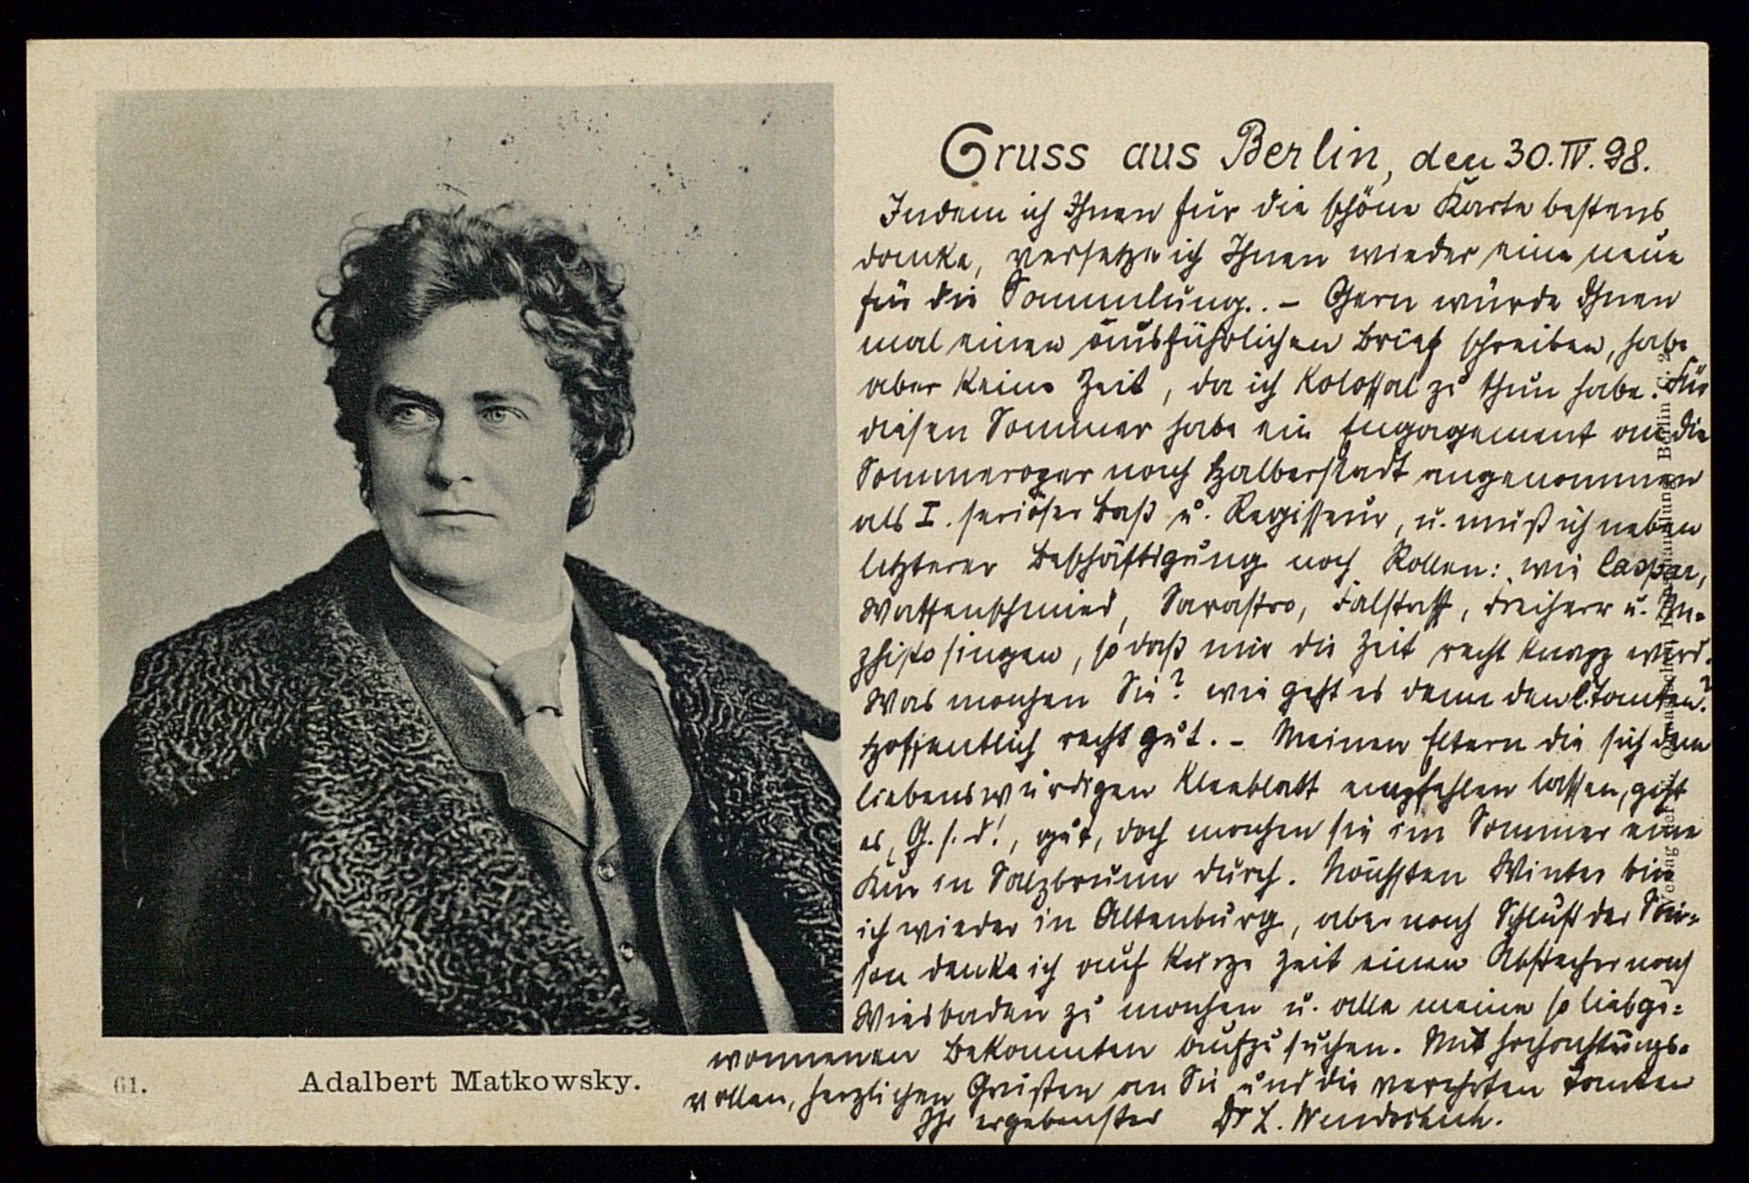 Gruss aus Berlin, den 30. IV. 98.
Indem ich Ihnen für die schöne Karte bestens
danke, versetze ich Ihnen wieder eine neue
für die Sammlung. . – Gern würde Ihnen
mal einen ausführlichen Brief schreiben, habe
aber keine Zeit, da ich kolossal zu thun habe. Für
diesen Sommer habe ein Engagement an die
Sommeroper nach Halberstadt angenommen
als I. seriöser Baß u. Regisseur, u. muß ich neben
letzterer Beschäftigung noch Rollen: wie Caspar,
Waffenschmied, Sarastro, Falstaff, Freiherr u.
singen, so daß mir die Zeit recht knapp wird.
Was machen Sie? wie geht es denn den l. Tanten?
Hoffentlich recht gut. – Meinen Eltern die sich dem
liebenswürdigen Kleeblatt empfehlen lassen, geht
es, G. s. d!, gut, doch machen sie im Sommer eine
Kur in Salzbrunn durch. Nächsten Winter bin
ich wieder in Altenburg, aber nach Schluß der Sai=
son denke ich auf kurze Zeit einen Abstecher nach
Wiesbaden zu machen u. alle meine so liebge=
wonnenen Bekannten aufzusuchen. Mit hochachtungs=
vollen, herzlichen Grüßen an Sie und die verehrten Tanten
Ihr ergebenster Dr L.
61. Adalbert Matkowsky.